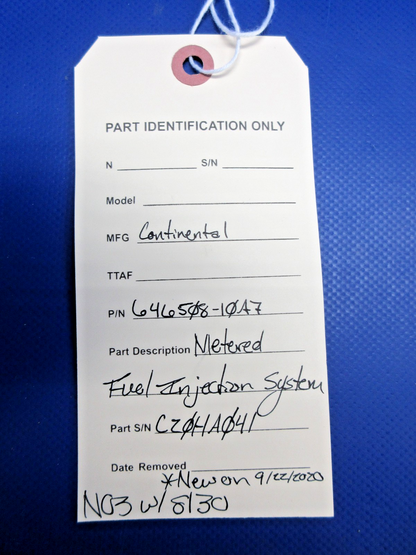 PART IDENTIFICATION ONLY
N ____________ S/N ____________
Model ____________
MFG Continental
TTAF ____________
P/N 646508-10A7
Part Description Metered
Fuel Injection System
Part S/N C20HA041
Date Removed ____________
*New on 9/22/2020
NO3 w/ 8130